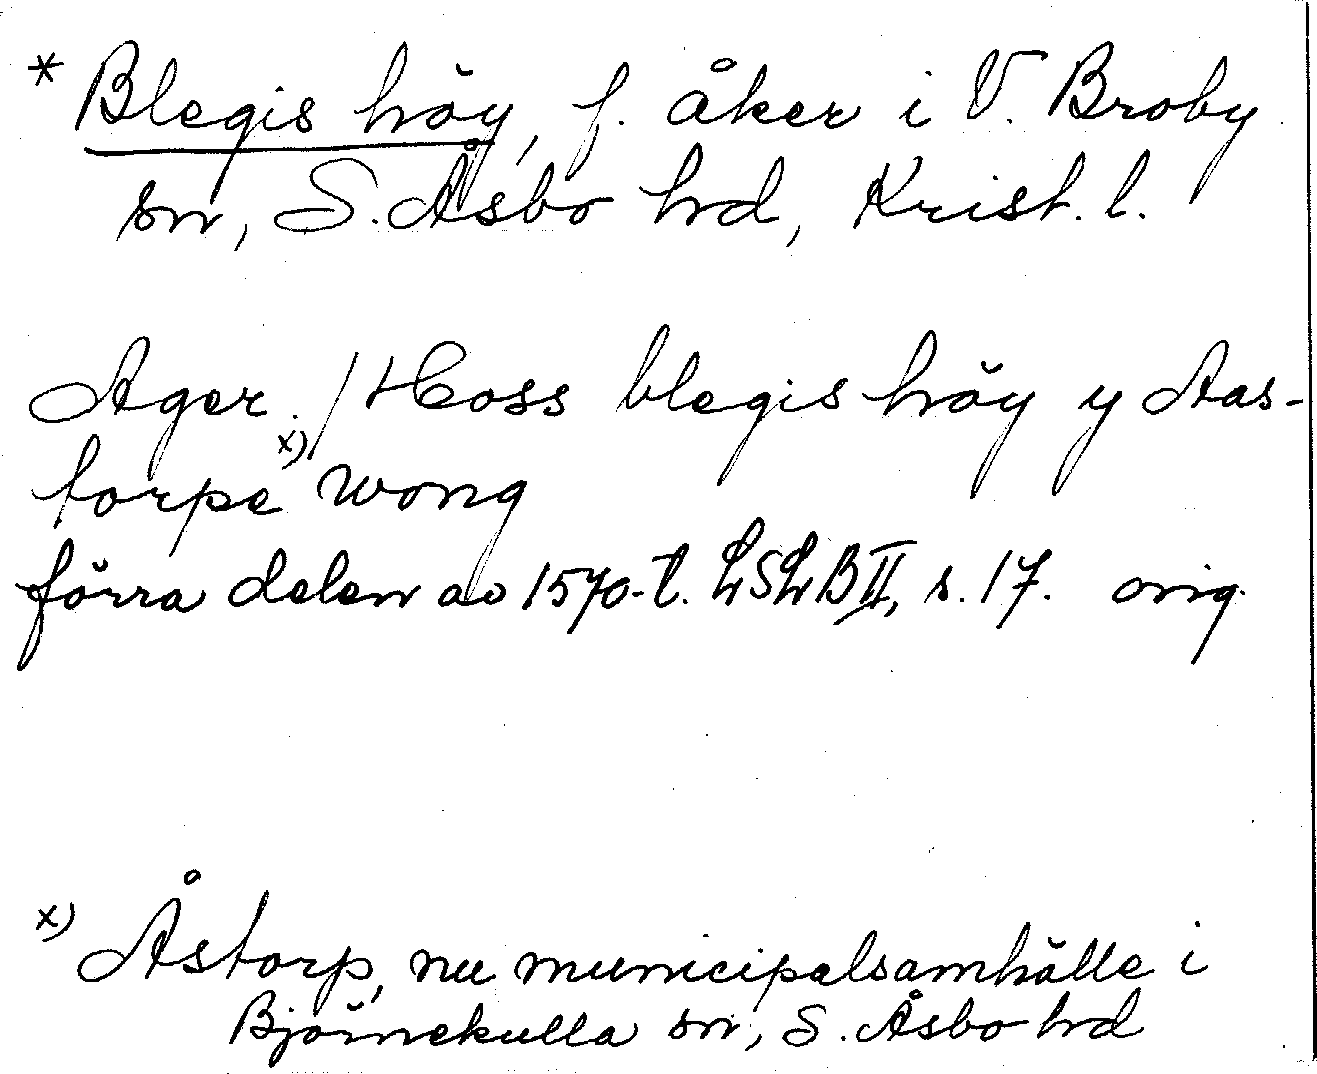 * Blegis höy, f. åker i V. Broby
sn, S. Åsbo hd, Krist. l.
Ager. / Hoss blegis höy y Aas-
torpe x) wong
förra delen av 1570-t. LSLB II, s. 17. orig.
x) Åstorp, nu municipalsamhälle i
Björnekulla sn, S. Åsbo hd